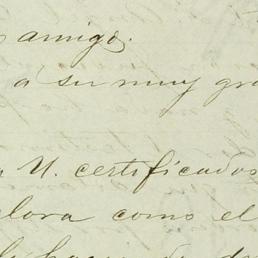 amigo.
a su muy gra
U. certificados
lora como el